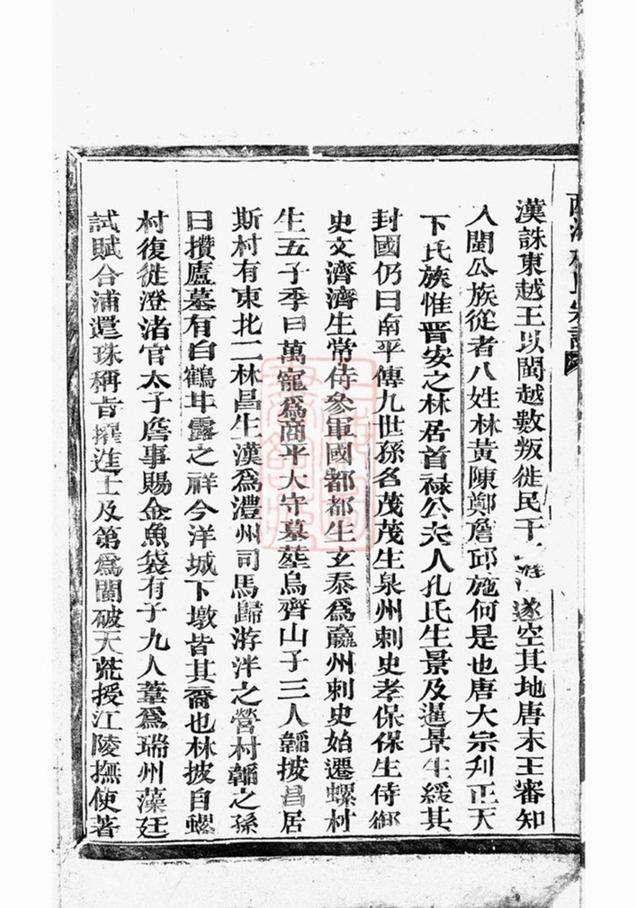 漢誅東越王以閩越數叛徙民于遂空其地唐末王審知
入閩公族從者八姓林黃陳鄭詹邱施何是也唐大宗刋正天
下氏族惟晋安之林居首祿公夫人孔氏生景及暹景生緩其
封國仍曰南平傳九世孫名茂茂生泉州刺史孝保保生侍御
史文濟濟生常侍參軍國都都生玄泰爲瀛州刺史始遷螺村
生五子季曰萬寵爲商平大守墓塟烏齊山子三人韜披昌居
斯村有東北二林昌生漢爲澧州司馬歸游泮之營村韜之孫
曰攢廬墓有白鶴甘露之祥今洋城下墩皆其裔也林披自螺
村復徙澄渚官太子詹事賜金魚袋有子九人葦爲瑞州藻廷
試賦合浦還珠稱旨擢進士及第爲閩破天荒授江陵撫使著